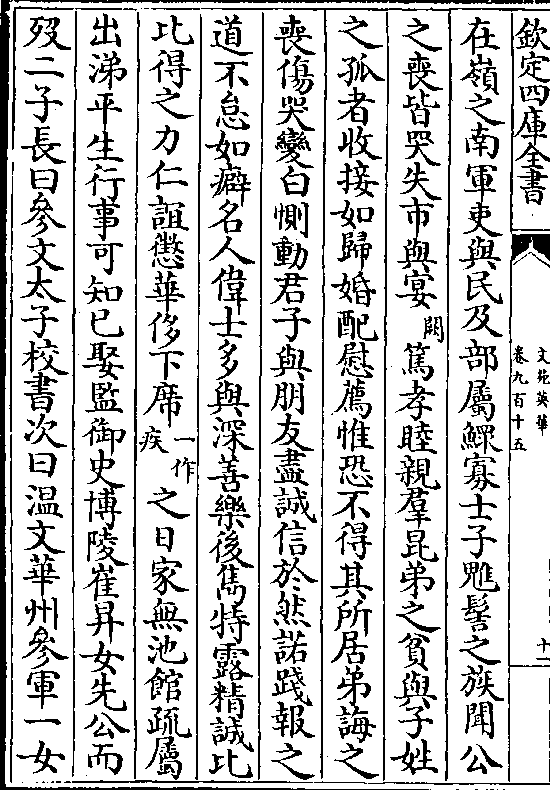 欽定四庫全書
文苑英華
卷九百十五
十一
在嶺之南軍吏與民及部屬鰥寡士子髡髻之族聞公
之喪皆哭失市與宴闕篤孝睦親羣昆弟之貧與子姓
之孤者收接如歸婚配慰薦惟恐不得其所居弟誨之
喪傷哭變白惻動君子與朋友盡誠信於然諾踐報之
道不怠如癖名人偉士多與深善樂後雋特露精誠比
比得之力仁誼懲華侈下席一作疾之日家無池館疏屬
出涕平生行事可知已娶監御史博陵崔昇女先公而
歿二子長曰參文太子校書次曰温文華州參軍一女